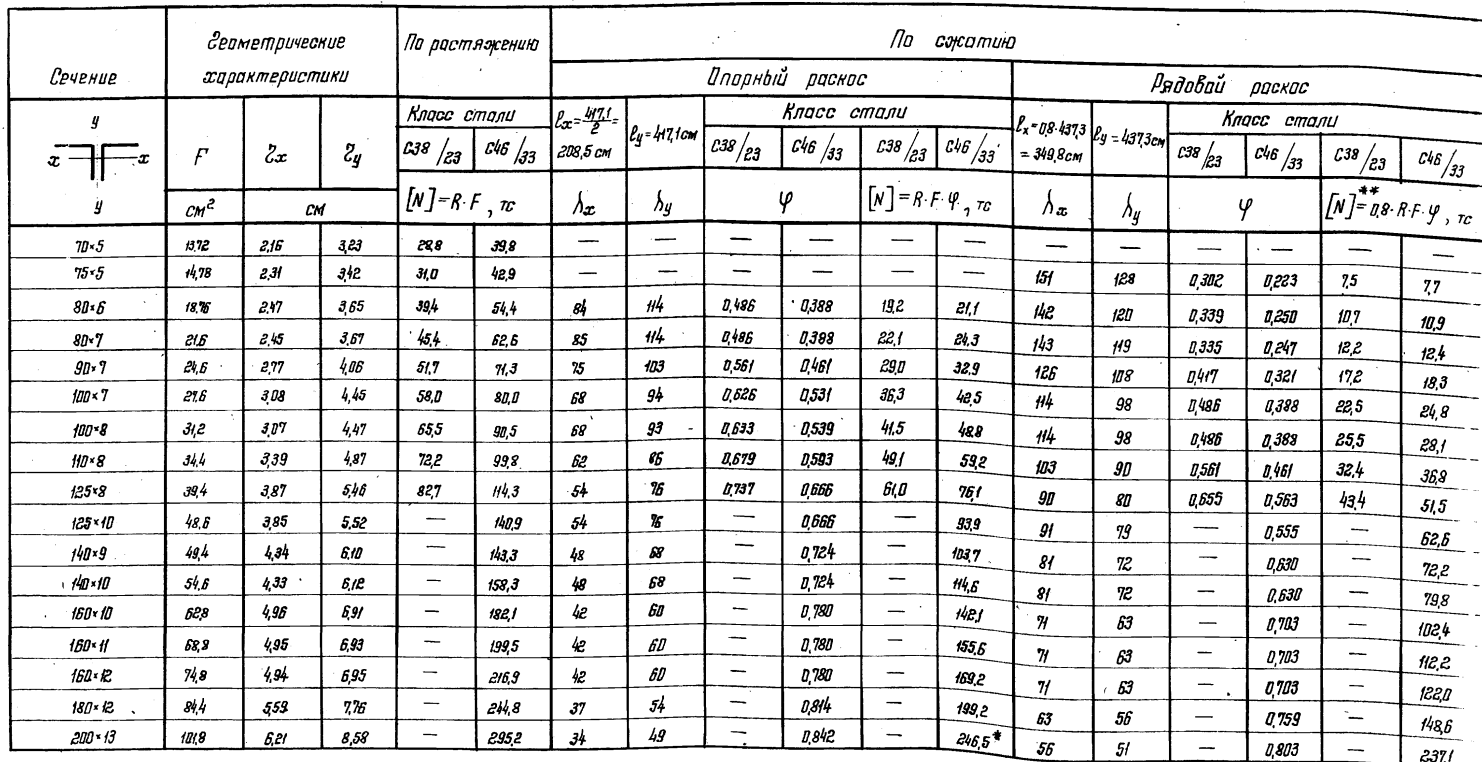 Сечение
Геометрические характеристики
По растяжению
По сжатию
Опорный раскос
Рядовой раскос
y x x y
F
ɀx
ɀy
Класс стали
C38/23 C46/33
lx = 417,1/2 = 208,5 см
ly = 417,1 см
Класс стали
C38/23 C46/33 C38/23 C46/33
lx = 0,8·437,3 = 349,8 см
ly = 437,3 см
Класс стали
C38/23 C46/33 C38/23 C46/33
см² см [N] = R·F, тс λx λy φ [N] = R·F·φ, тс λx λy φ [N]** = 0,8·R·F·φ, тс
70×5 13,72 2,16 3,23 28,8 39,8 — — — — — — — — — — — —
75×5 14,78 2,31 3,42 31,0 42,9 — — — — — — 151 128 0,302 0,223 7,5 7,7
80×6 18,76 2,47 3,65 39,4 54,4 84 114 0,486 0,388 19,2 21,1 142 120 0,339 0,250 10,7 10,9
80×7 21,6 2,45 3,67 45,4 62,6 85 114 0,486 0,388 22,1 24,3 143 119 0,335 0,247 12,2 12,4
90×7 24,6 2,77 4,06 51,7 71,3 75 103 0,561 0,461 29,0 32,9 126 108 0,417 0,321 17,2 18,3
100×7 27,6 3,08 4,45 58,0 80,0 68 94 0,626 0,531 36,3 42,5 114 98 0,486 0,388 22,5 24,8
100×8 31,2 3,07 4,47 65,5 90,5 68 93 0,633 0,539 41,5 48,8 114 98 0,486 0,388 25,5 28,1
110×8 34,4 3,39 4,87 72,2 99,8 62 86 0,679 0,593 49,1 59,2 103 90 0,561 0,461 32,4 36,8
125×8 39,4 3,87 5,46 82,7 114,3 54 76 0,737 0,666 61,0 76,1 90 80 0,655 0,563 43,4 51,5
125×10 48,6 3,85 5,52 — 140,9 54 76 — 0,666 — 93,9 91 79 — 0,555 — 62,6
140×9 49,4 4,34 6,10 — 143,3 48 68 — 0,724 — 103,7 81 72 — 0,630 — 72,2
140×10 54,6 4,33 6,12 — 158,3 48 68 — 0,724 — 114,6 81 72 — 0,630 — 79,8
160×10 62,8 4,96 6,91 — 182,1 42 60 — 0,780 — 142,1 71 63 — 0,703 — 102,4
160×11 68,8 4,95 6,93 — 199,5 42 60 — 0,780 — 155,6 71 63 — 0,703 — 112,2
160×12 74,8 4,94 6,95 — 216,9 42 60 — 0,780 — 169,2 71 63 — 0,703 — 122,0
180×12 84,4 5,59 7,76 — 244,8 37 54 — 0,814 — 199,2 63 56 — 0,759 — 148,6
200×13 101,8 6,21 8,58 — 295,2 34 49 — 0,842 — 246,5* 56 51 — 0,803 — 237,1